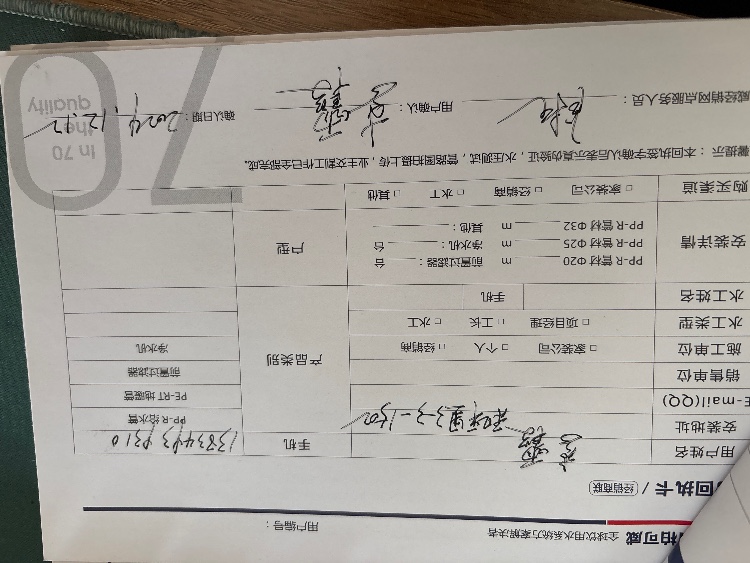 柏可威 全球饮用水系统方案解决者
用户编号：
回执卡 / 经销商联
用户姓名 手机
安装地址 3-3-1502 产品类别 PP-R 给水管
E-mail(QQ) PE-RT 地暖管
销售单位 前置过滤器
施工单位 □ 家装公司 □ 个人 □ 经销商 净水机
水工类型 □ 项目经理 □ 工长 □ 水工
水工姓名 手机
安装详情 PP-R 管材 Φ20 m 前置过滤器： 台 户型
PP-R 管材 Φ25 m 净水机： 台
PP-R 管材 Φ32 m 其他：
购买渠道 □ 家装公司 □ 经销商 □ 水工 □ 其他
馨提示：本回执签字确认后表示真伪验证，水压测试，管路图拍摄上传，业主交割工作已全部完成。
威经销网点服务人员： 用户确认： 确认日期： 2024.12.12
In 70
the
quality
70